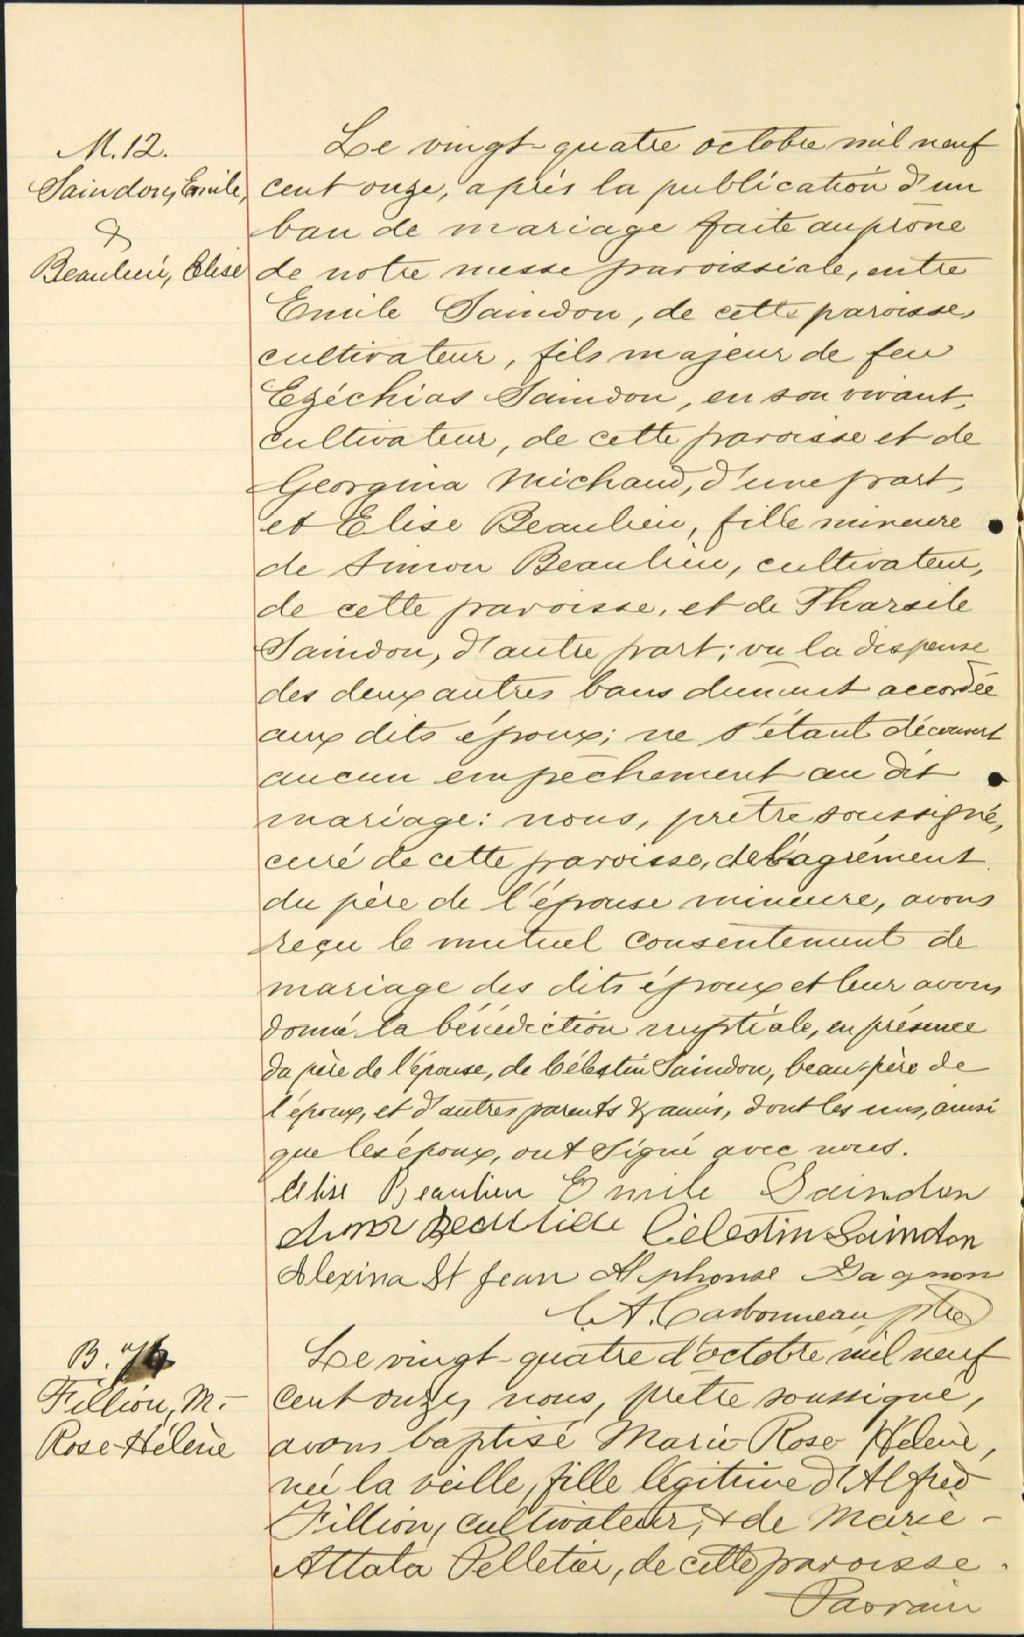 M. 12.
Saindon, Emile,
&
Beaulieu, Elise
Le vingt-quatre octobre mil neuf
cent onze, après la publication d'un
ban de mariage faite au prône
de notre messe paroissiale, entre
Emile Saindon, de cette paroisse,
cultivateur, fils majeur de feu
Ezéchias Saindon, en son vivant,
cultivateur, de cette paroisse et de
Georgina Michaud, d'une part,
et Elise Beaulieu, fille mineure
de Simon Beaulieu, cultivateur,
de cette paroisse, et de Tharsile
Saindon, d'autre part; vu la dispense
des deux autres bans dument accordée
aux dits époux; ne s'étant découvert
aucun empêchement au dit
mariage: nous, prêtre soussigné,
curé de cette paroisse, de l'agrément
du père de l'épouse mineure, avons
reçu le mutuel consentement de
mariage des dits époux et leur avons
donné la bénédiction nuptiale, en présence
du père de l'épouse, de Célestin Saindon, beau-père de
l'époux, et d'autres parents & amis, dont les uns, ainsi
que les époux, ont signé avec nous.
Elise Beaulieu Emile Saindon
Simon Beaulieu Célestin Saindon
Alexina St Jean Alphonse Gagnon
C. A. Carbonneau, ptre
B.
Fillion, M.-
Rose-Hélène
Le vingt-quatre d'octobre mil neuf
cent onze, nous, prêtre soussigné,
avons baptisé Marie-Rose-Hélène,
née la veille, fille légitime d'Alfred
Fillion, cultivateur, & de Marie-
Attala Pelletier, de cette paroisse.
Parrain